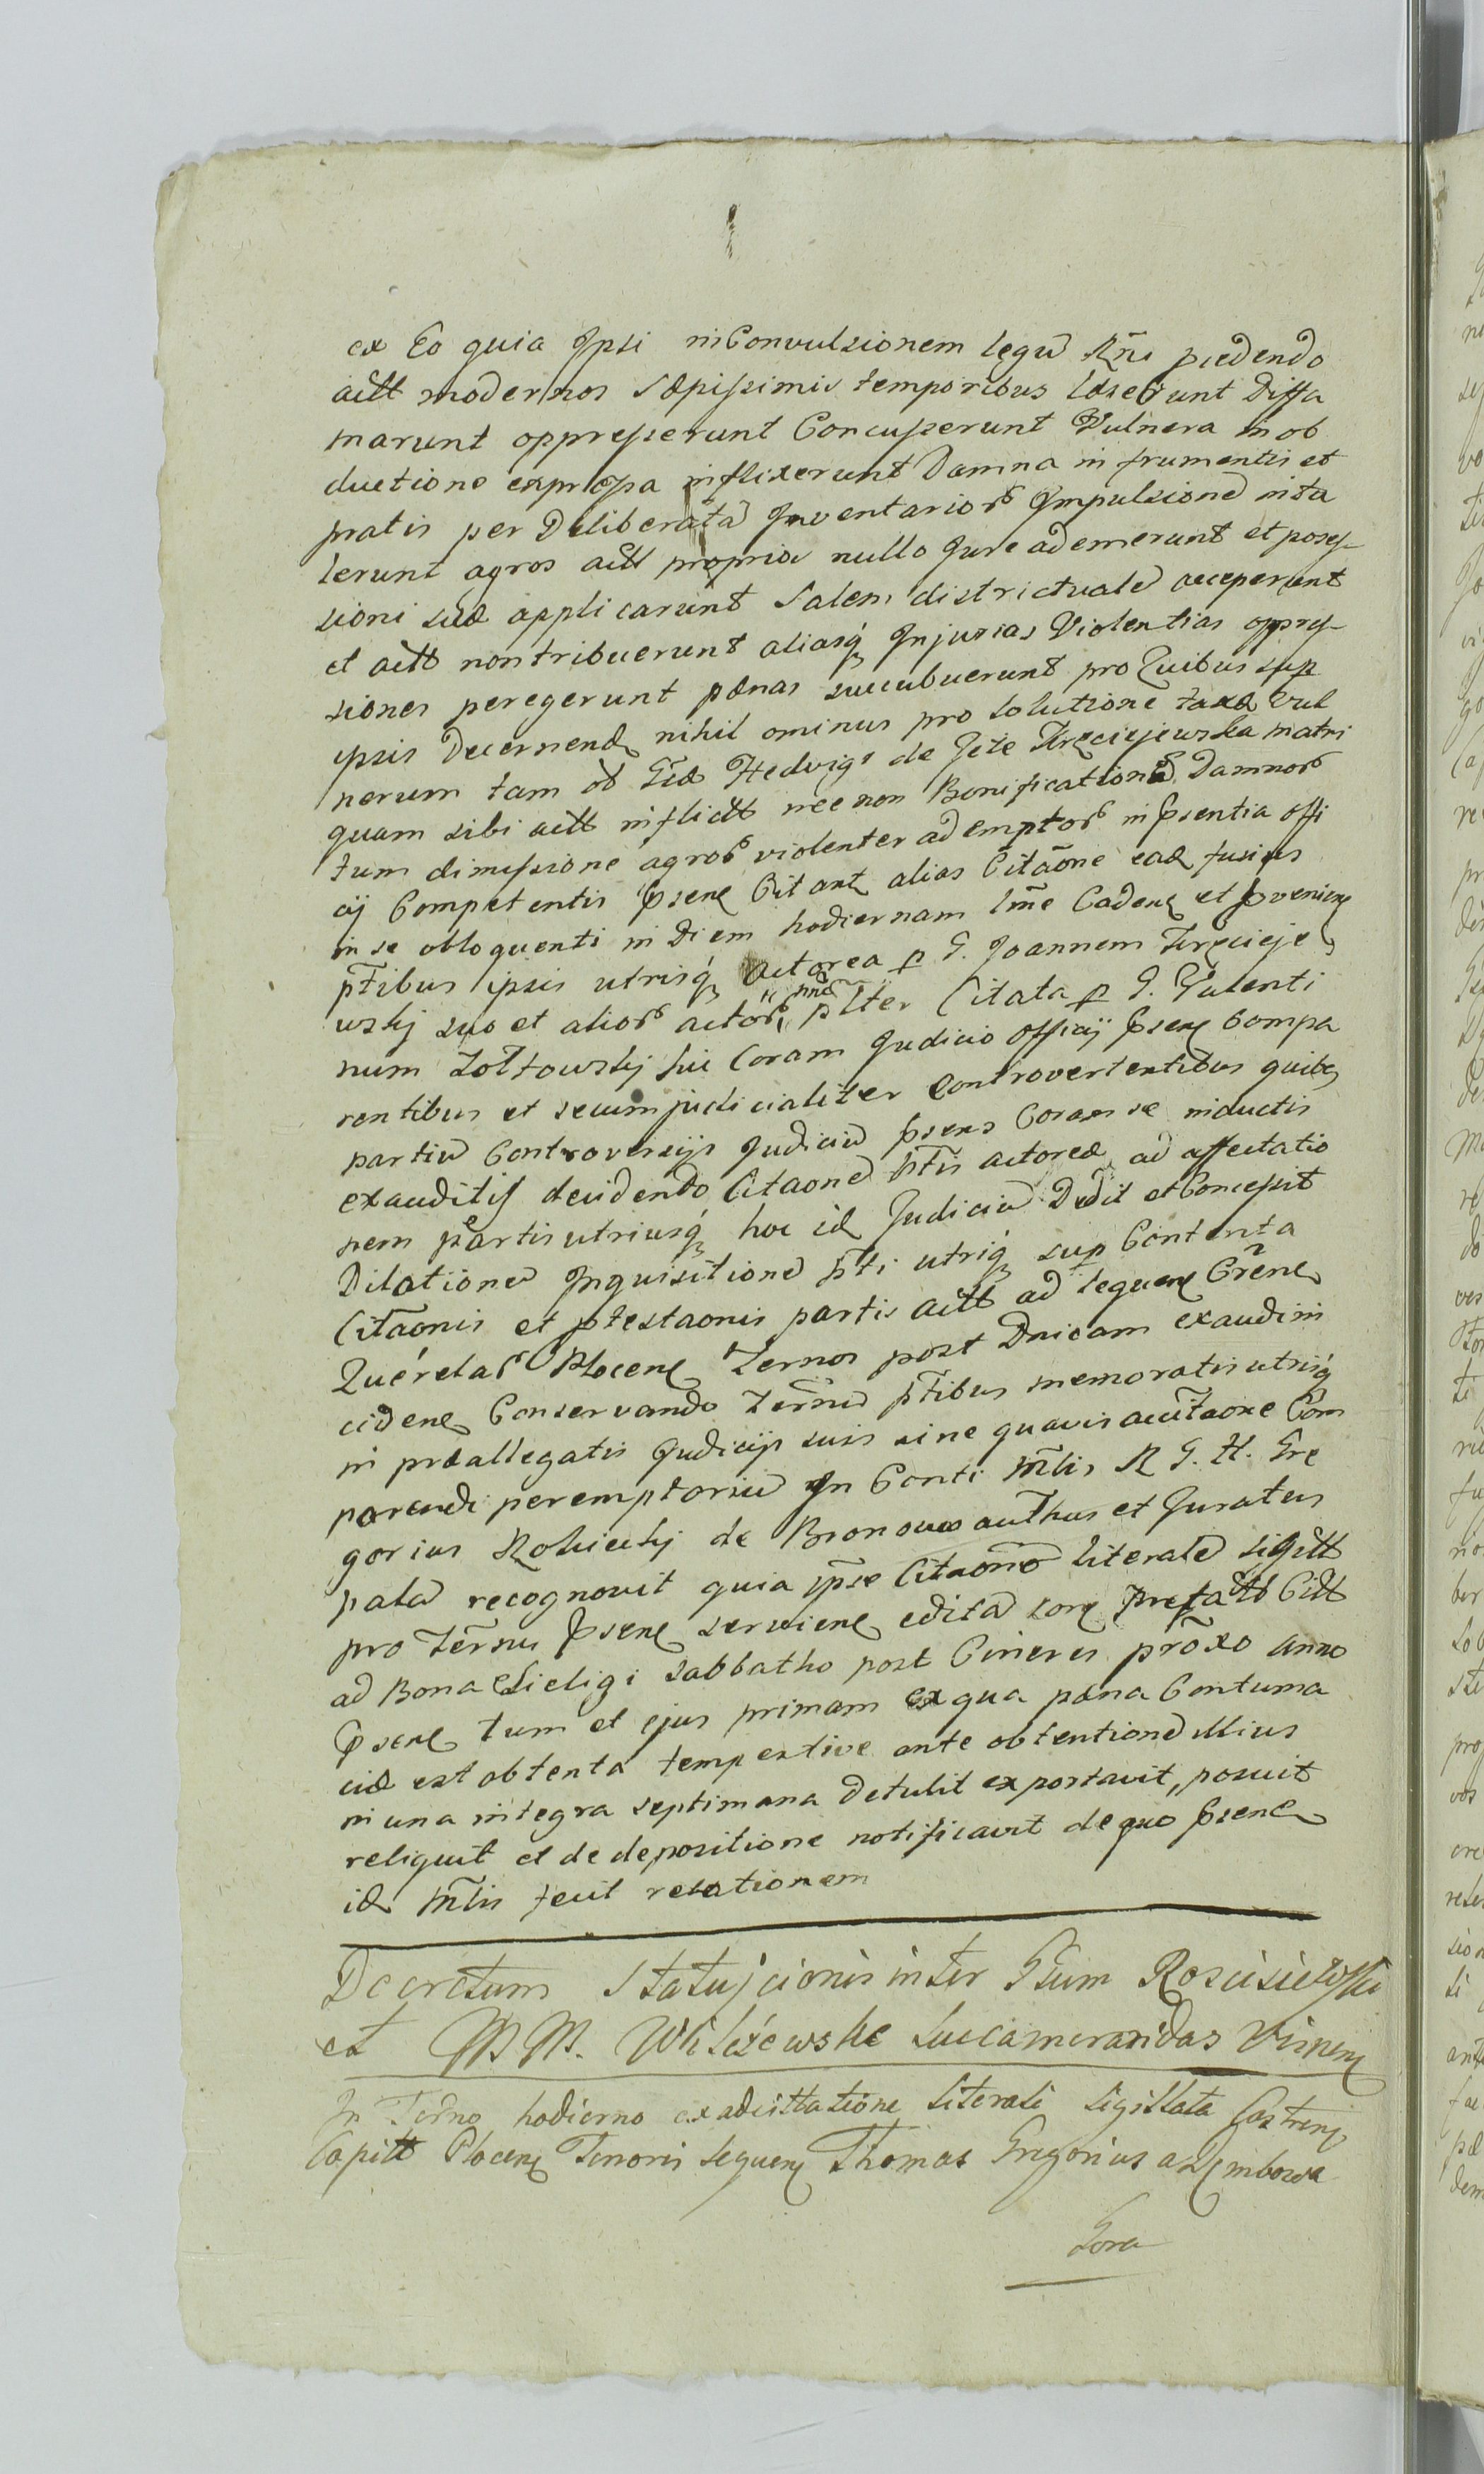 ex Eo quia Ipsi in Convulsionem legū Rñi p̄cedendo
actt modernos sæpissimis temporibus læserunt Diffa
marunt oppresserunt Concusserunt Vulnera in ob
ductione expressa inflixerunt Damna in frumentis et
pratis per Deliberatā Inventarioꝝ Impulsionē intu
lerunt agros actt proprios nullo Jure ademerunt et posses-
sioni suæ applicarunt Salem districtualē acceperunt
et actt non tribuerunt aliasq́ Injurias Violentias oppres-
siones peregerunt pænas succubuerunt pro Quibus sup
ipsis Decernend nihil ominus pro solutione taxæ Vul
nerum tam ꝺ Gſæ Hedvigi de Jeże Trzciejewska matri
quam sibi actt inflictt nec non Bonificationē Damnoꝝ
tum dimissione agroꝝ violenter ademptoꝝ in p̄sentia offi
cij Competentis p̄sen Citant alias Citãone ead fusius
in se obloquenti in Diem hodiernam lm̃e Caden et p̄venien
pt̃ibus ipsis utrisq́ actorea p G. Joannem Trzcieje
wskj suo et alioꝝ actoꝝ nñe plter Citata p G. Valenti
num Zołtowskj hic Coram Judicio Officij p̄sen Compa
rentibus et secum judicialiter Controvertentibus quibus
partiū Controversijs Judiciū p̄sens Coram se inductis
exauditis decidendo Citaonē ptis actoreæ ad affectatio
nem partis utriusq́ hoc id Judiciū Dedit et Concessit
Dilationē Inquisitionē pti utriq́ sup Contenta
Citãonis et p̄testaonis partis actt ad sequen Crẽne
Querelaꝝ Plocen Ternos post Dnicam exaudi in
ciden Conservando Terñū pt̃ibus memoratis utrisq́
in præallegatis Judicijs suis sine quavis accit̃aone Com
parendi peremptoriū In Conti Mt̃is R G. H. Gre
gorius Rokickj de Bronowo authus et Juratus
palā recognovit quia ip̃se Citaonē literalē sigittt
pro Terñis p̄sen servien editā cora prefattt Citt
ad Bona Sieligi Sabbatho post Cineres prõxo anno
p̄sen tum et ejus primam ex qua pæna Contuma
ciæ est obtenta tempestive ante obtentionē illius
in una integra septimana Detulit exportavit, posuit
reliquit et de depositione notificavit de quo p̄sen
id Mt̃lis fecit relationem
Decretum Statuicionis inter Gſum Rosciszewski
et MM. Wilczewskie Succameraridas Visnen
In Terño hodierno ex adcittatione literali sigillata Castren
Capitt Plocen Tenoris sequen Thomas Gregorius a Zembowa
Gora